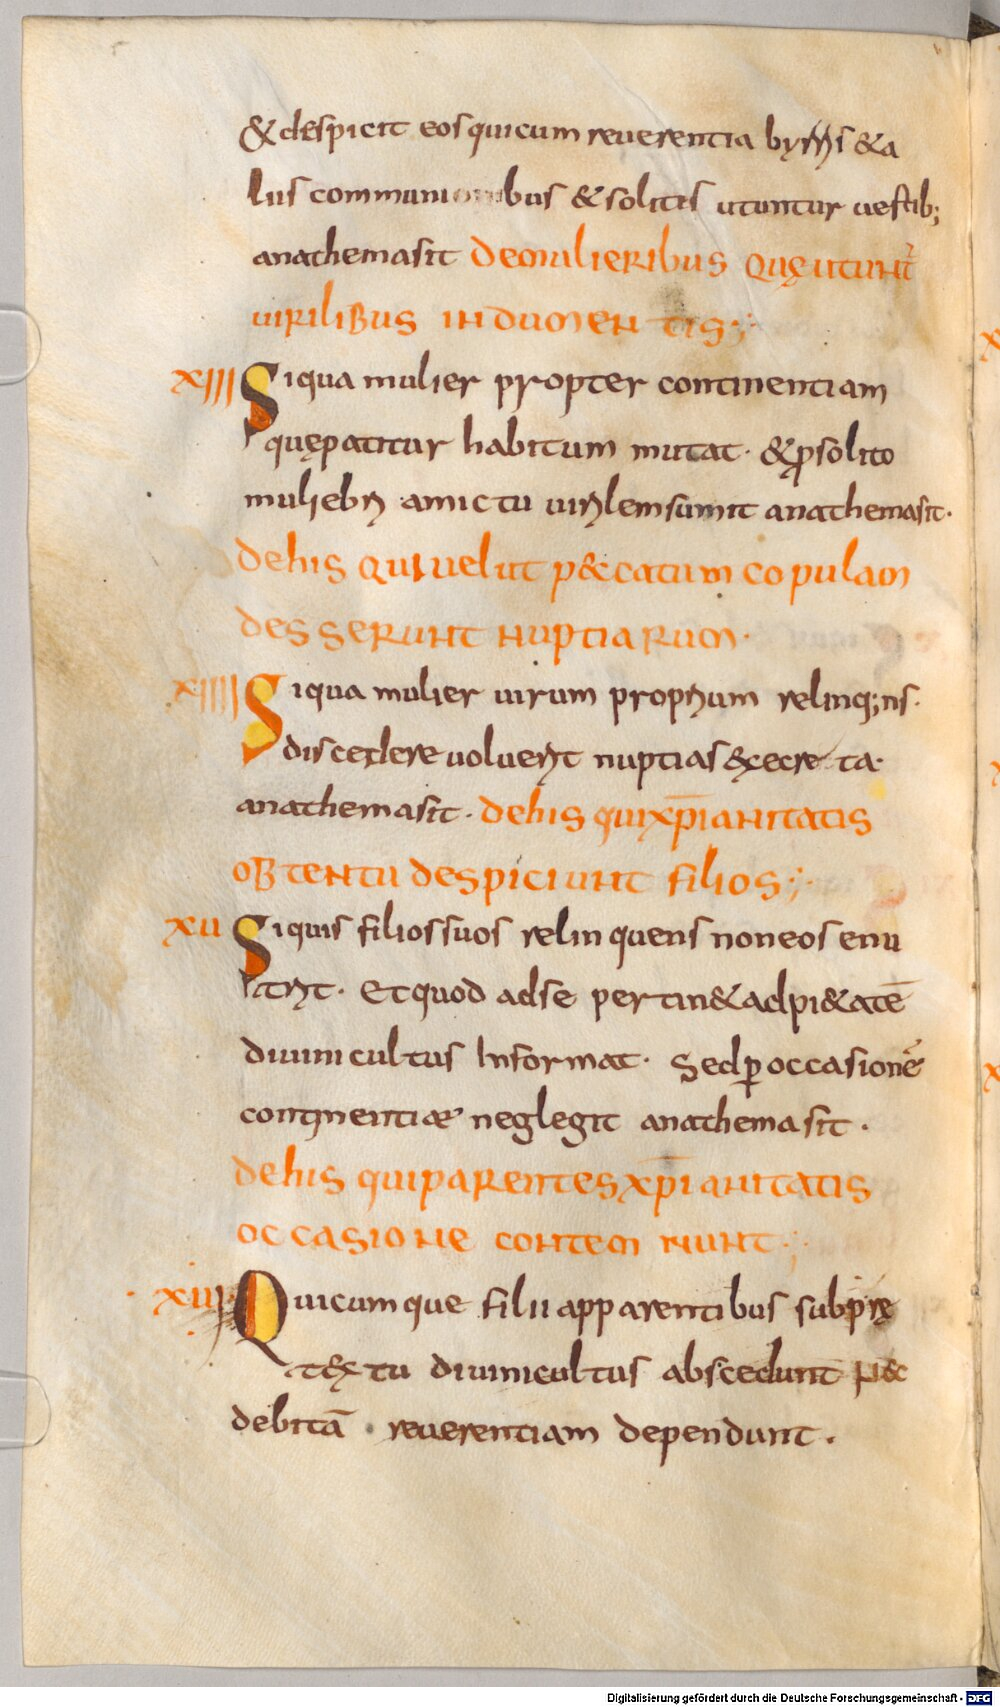 &despicit eos quicum reuerentia byrris &a
liis communionibus &solitis utuntur uestib;
anathemasit De mulieribus quę utunt̄
uirilibus indumentis;
XIII Siqua mulier propter continentiam
quę patitur habitum mutat · & ꝓ solito
muliebri amictu uirilem sumit anathemasit ·
De his qui uelut p&catum copulam
desserunt nuptiarum ·
XIIII Siqua mulier uirum proprium relinq;ns ·
discedere uoluerit nuptias &xecreta ·
anathemasit · De his qui xp̄ianitatis
obtentu despiciunt filios;
XU Siquis filios suos relinquens non eos enu
trit · Et quod ad se pertin& ad pi&atē
diuini cultus informat · Sed ꝑ occasionē
continentiae neglegit anathemasit ·
De his qui parentes xp̄ianitatis
occasione contemnunt;
XUI Quicumque filii apparentibus sub prę
t&xtu diuini cultus abscedunt n&c
debitā reuerentiam dependunt ·
Digitalisierung gefördert durch die Deutsche Forschungsgemeinschaft - DFG